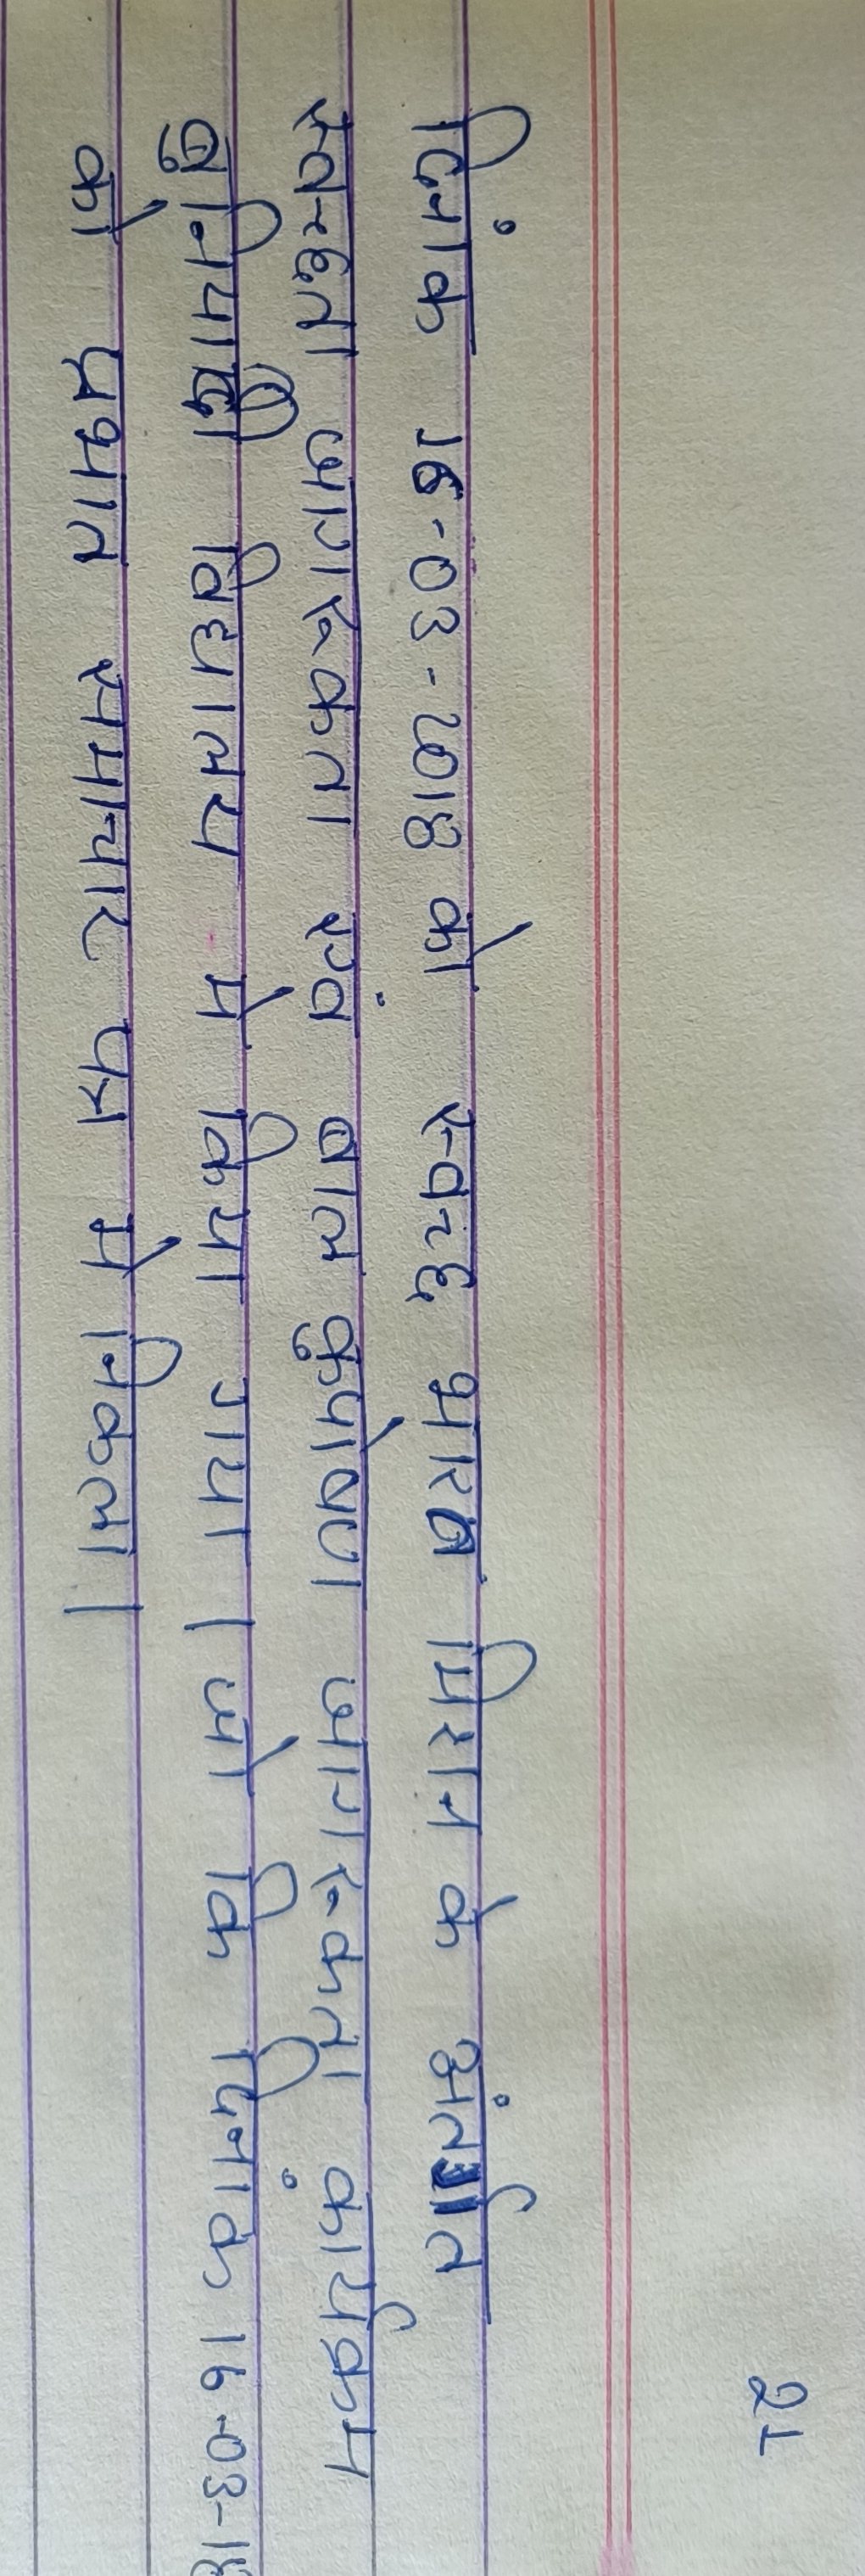 21
दिनांक 16-03-2018 को स्वच्छ भारत मिशन के अंतर्गत
स्वच्छता जागरूकता एवं बाल कुपोषण जागरूकता कार्यक्रम
बुनियादी विद्यालय मे किया गया। जो कि दिनांक 16-03-18
को प्रभात समाचार पत्र मे निकला।